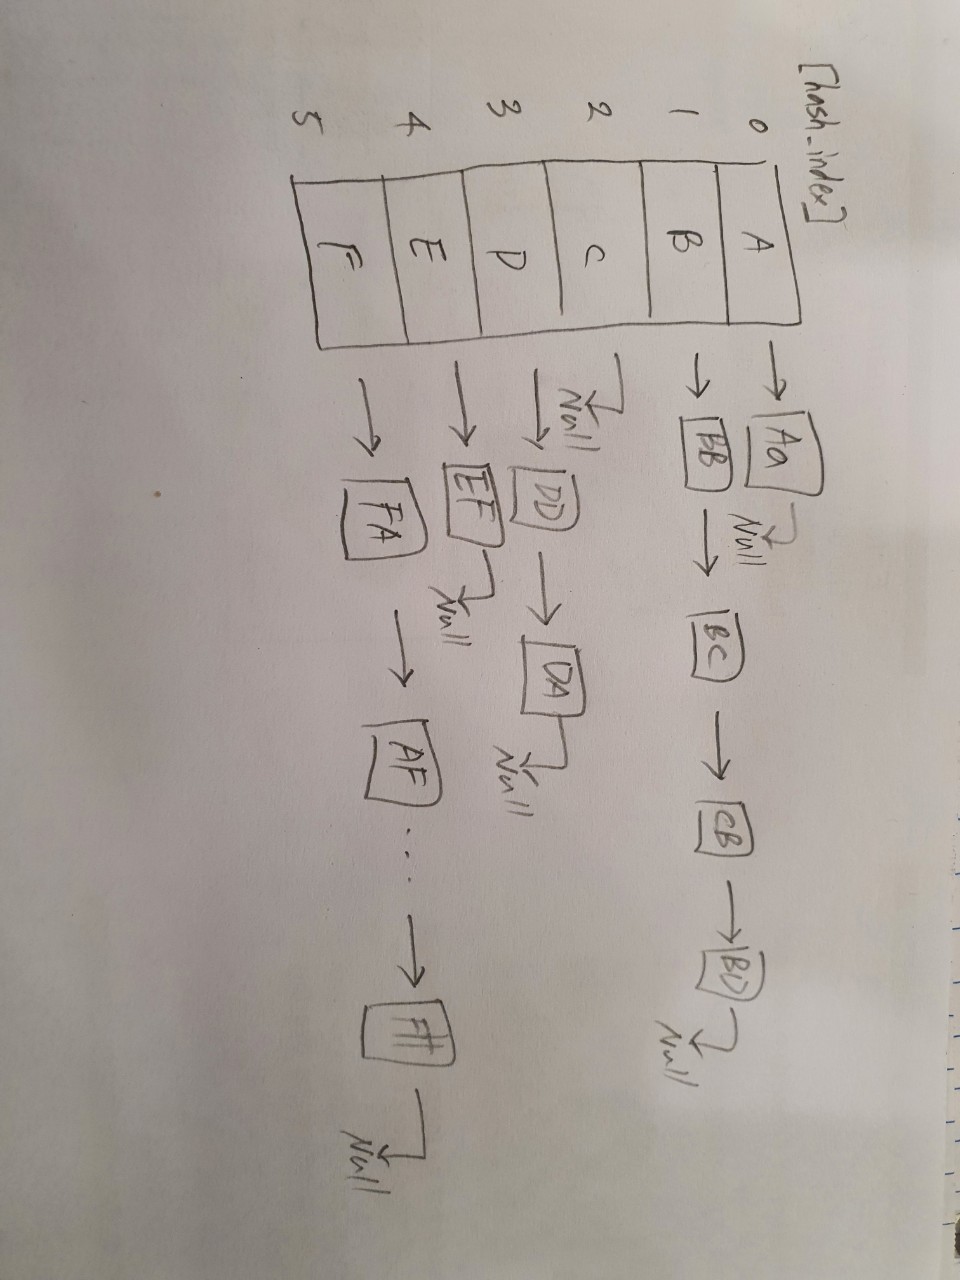 [hash_index]
0 A Aa Null
1 B BB BC CB BD Null
2 C Null
3 D DD DA Null
4 E EF Null
5 F FA AF ... FH Null